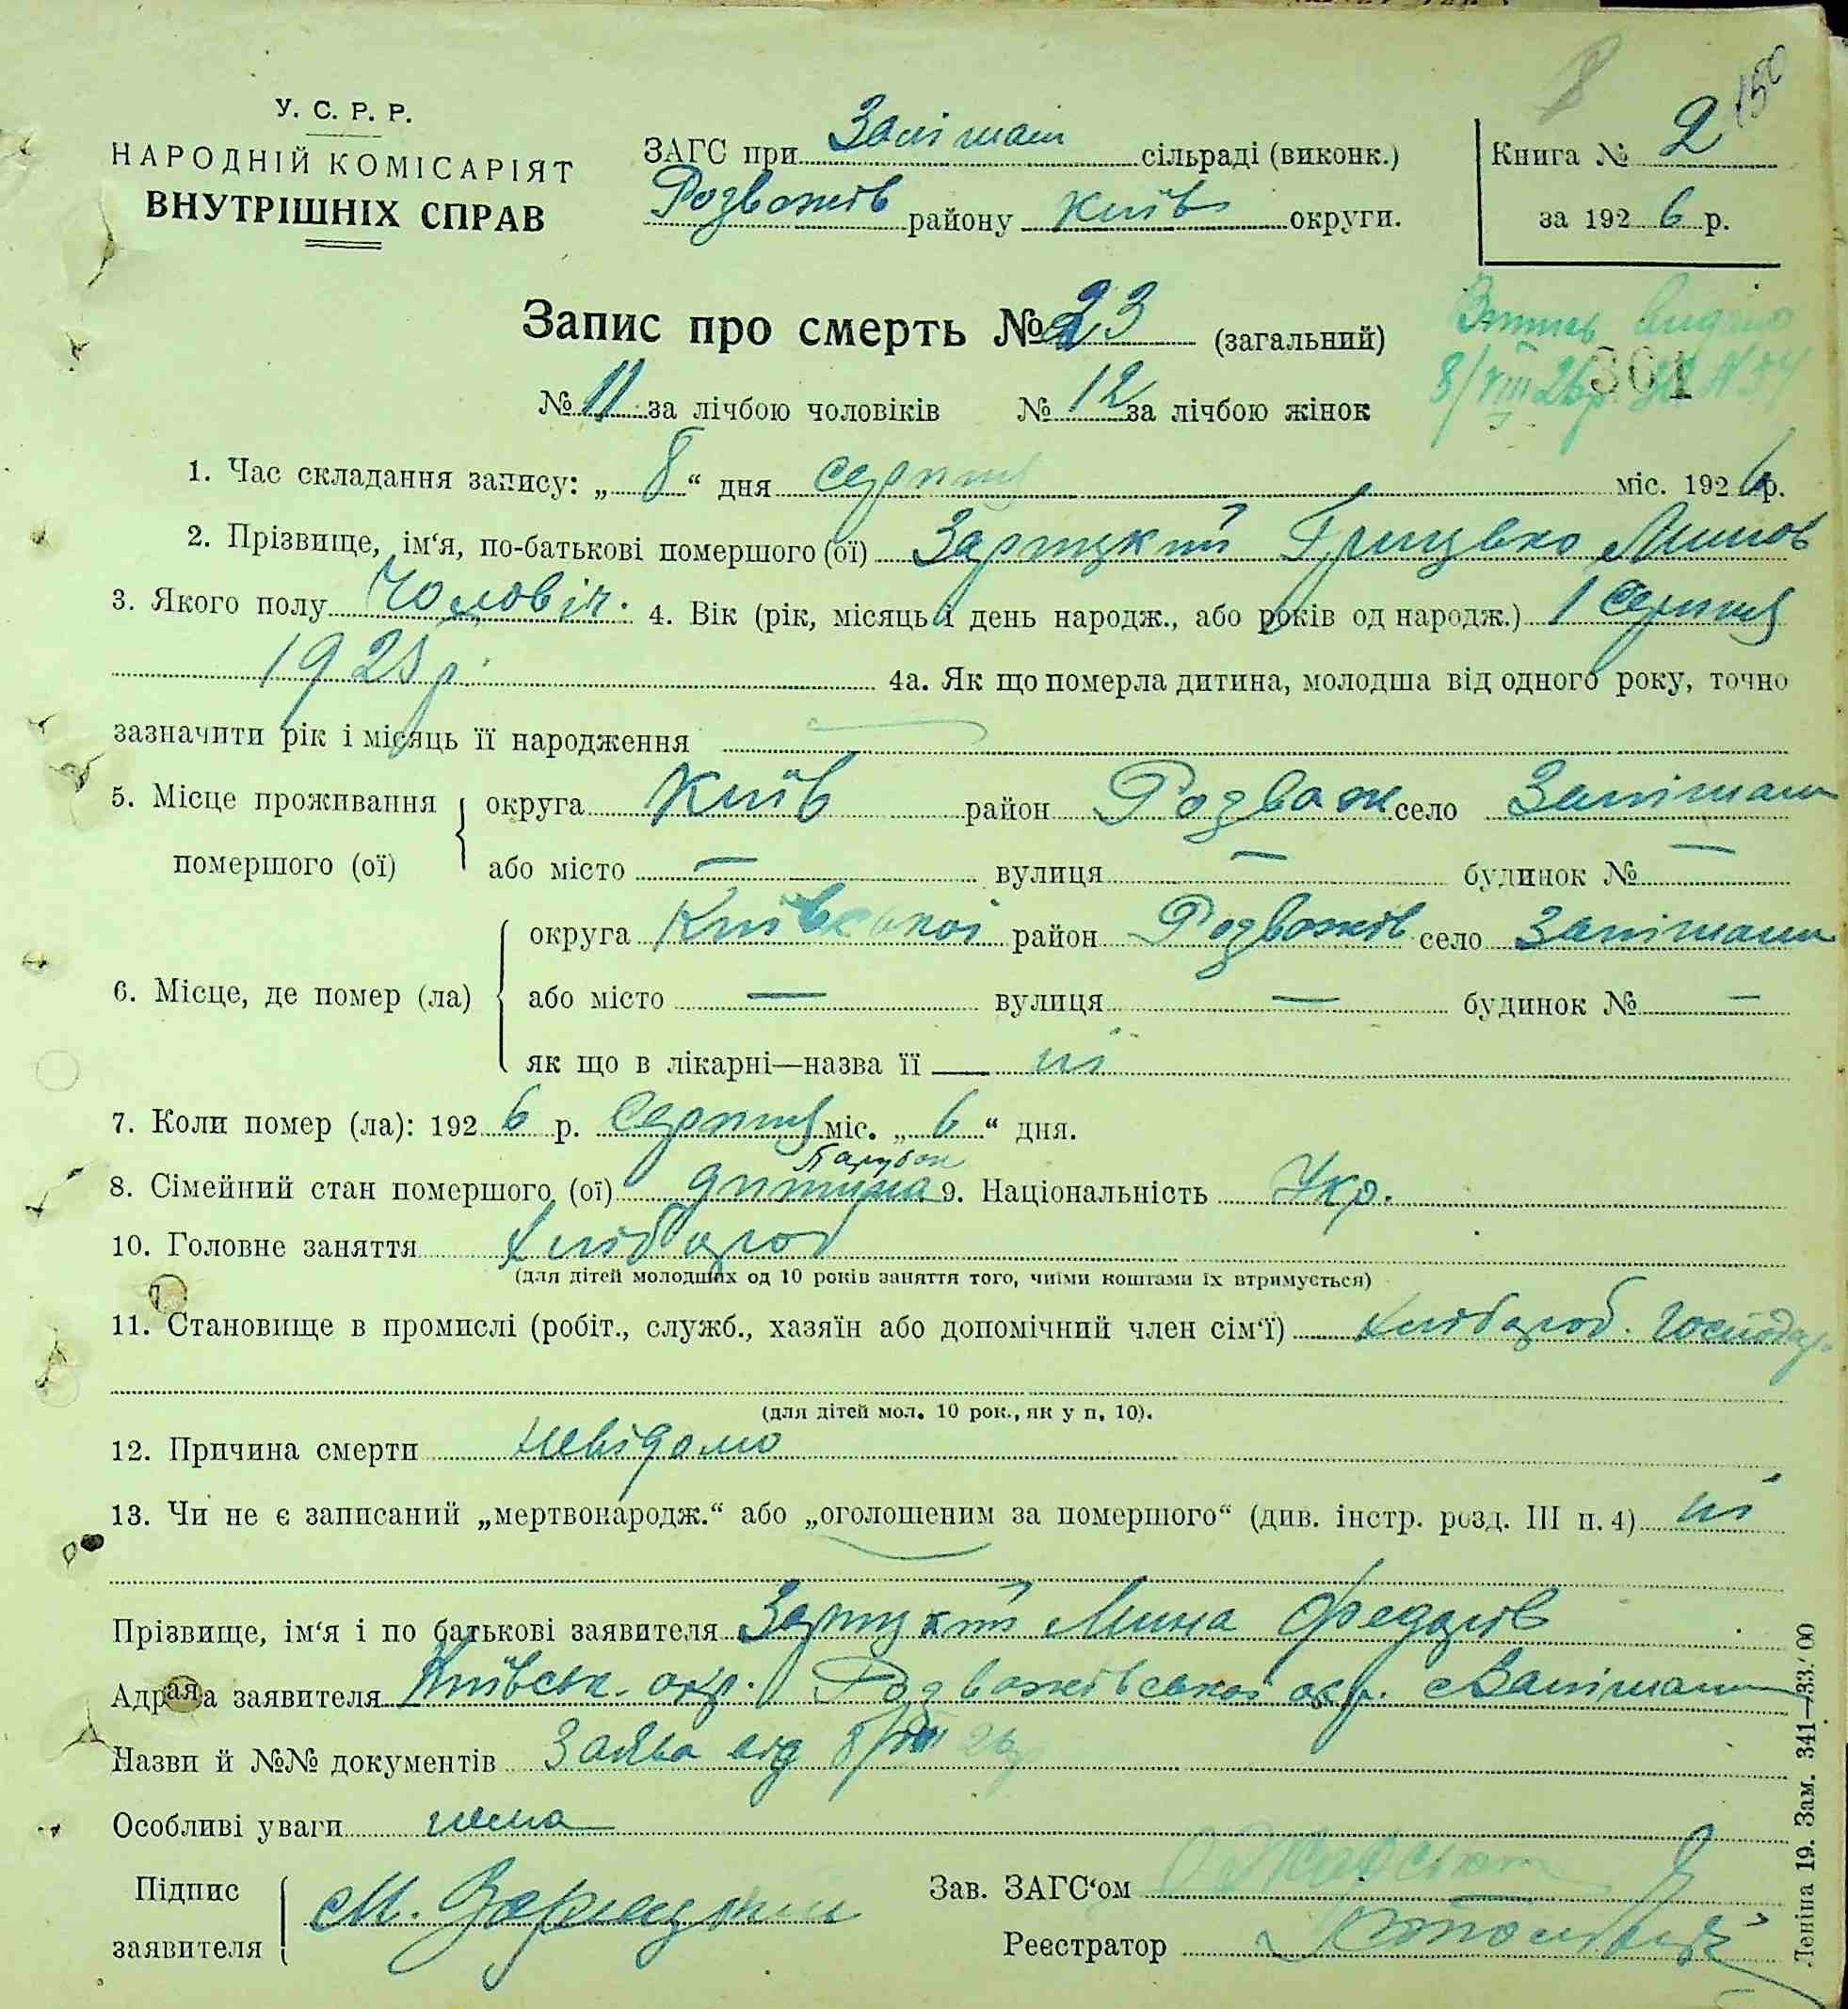 150
У. С. Р. Р.
НАРОДНІЙ КОМІСАРІЯТ
ВНУТРІШНІХ СПРАВ
ЗАГС при Заліман сільраді (виконк.)
Розважів району Київ округи.
Книга № 2
за 1926 р.
Запис про смерть № 23 (загальний)
Витяг видано
8/VIII 26р. № 54
301
№ 11 за лічбою чоловіків № 12 за лічбою жінок
1. Час складання запису: „ 8 “ дня серпня міс. 1926 р.
2. Прізвище, ім‘я, по-батькові помершого (ої) Зарицкий Грицько Минов
3. Якого полу Чоловіч. 4. Вік (рік, місяць і день народж., або років од народж.) 1 Серпня
192 р. 4а. Як що померла дитина, молодша від одного року, точно
зазначити рік і місяць її народження
5. Місце проживання помершого (ої) округа Київ район Розваж село
або місто — вулиця — будинок № —
6. Місце, де помер (ла) округа Київської район Розважів село
або місто — вулиця — будинок № —
як що в лікарні—назва її — ні
7. Коли помер (ла): 1926 р. Серпня міс. „ 6 “ дня.
Парубок
8. Сімейний стан помершого (ої) дитина 9. Національність Укр.
10. Головне заняття Хлібороб
(для дітей молодших од 10 років заняття того, чиїми коштами їх втримується)
11. Становище в промислі (робіт., служб., хазяїн або допомічний член сім‘ї) хлібороб. господар.
(для дітей мол. 10 рок., як у п. 10).
12. Причина смерти невідомо
13. Чи не є записаний „мертвонародж.“ або „оголошеним за помершого“ (див. інстр. розд. III п. 4) ні
Прізвище, ім‘я і по батькові заявителя Зарицкий Мина Федорів
Адреса заявителя Київськ. окр. Розважівської
Назви й №№ документів Заява від 8/VIII 26р
Особливі уваги нема
Підпис заявителя М. Зарицкий
Зав. ЗАГС‘ом
Реєстратор
Леніна 19. Зам. 341—33.000